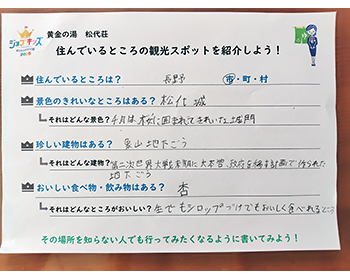 黄金の湯 松代荘
ジョブキッズ
住んでいるところの観光スポットを紹介しよう！
住んでいるところは？ 長野 市・町・村
景色のきれいなところはある？ 松代城
それはどんな景色？ 4月は桜に囲まれてきれいな城門
珍しい建物はある？ 象山地下ごう
それはどんな建物？ 第二次世界大戦末期に大本営、政府を移す計画で作られた
地下ごう
おいしい食べ物・飲み物はある？ 杏
それはどんなところがおいしい？ 生でもシロップづけでもおいしく食べれるところ
その場所を知らない人でも行ってみたくなるように書いてみよう！